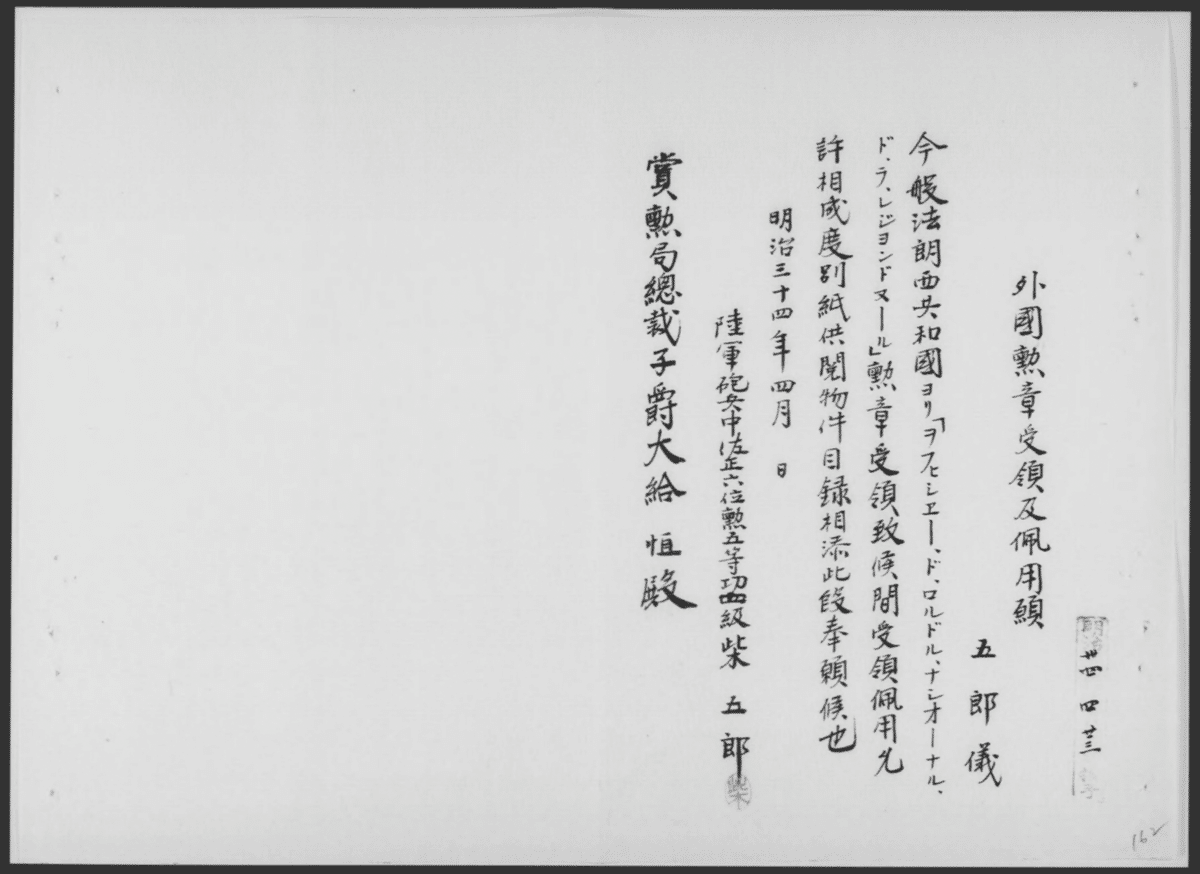 明治 卅四 四 廿三
外國勲章受領及佩用願
五郎儀
今般法朗西共和國ヨリ「ヲフヒシエー、ド、ロルドル、ナシオーナル、
ド、ラ、レジヨンドヌール」勲章受領致候間受領佩用允
許相成度別紙供閲物件目録相添此段奉願候也
明治三十四年四月 日
陸軍砲兵中佐正六位勲五等功四級柴 五郎
柴
賞勲局總裁子爵大給 恒殿
162